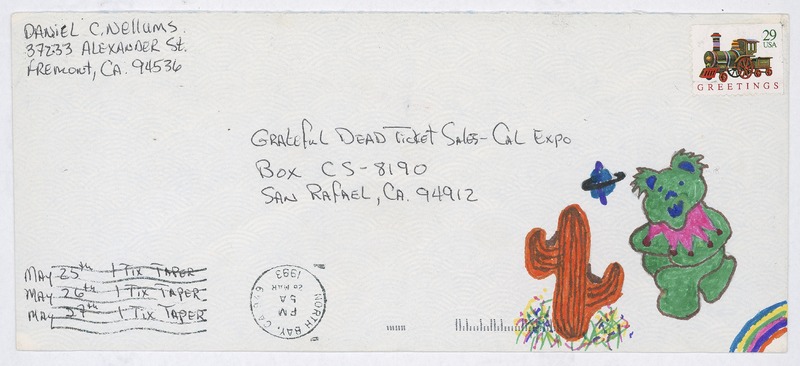 DANIEL C. Nellums.
37233 ALEXANDER St.
FREMONT, CA. 94536
29
USA
GREETINGS
GRATEFUL DEAD TICKET SALES - CAL EXPO
BOX CS-8190
SAN RAFAEL, CA. 94912
MAY 25th 1 TIX TAPER
MAY 26th 1 TIX TAPER
MAY 27th 1 TIX TAPER
NORTH BAY, CA
PM
5A
20 MAR
1993